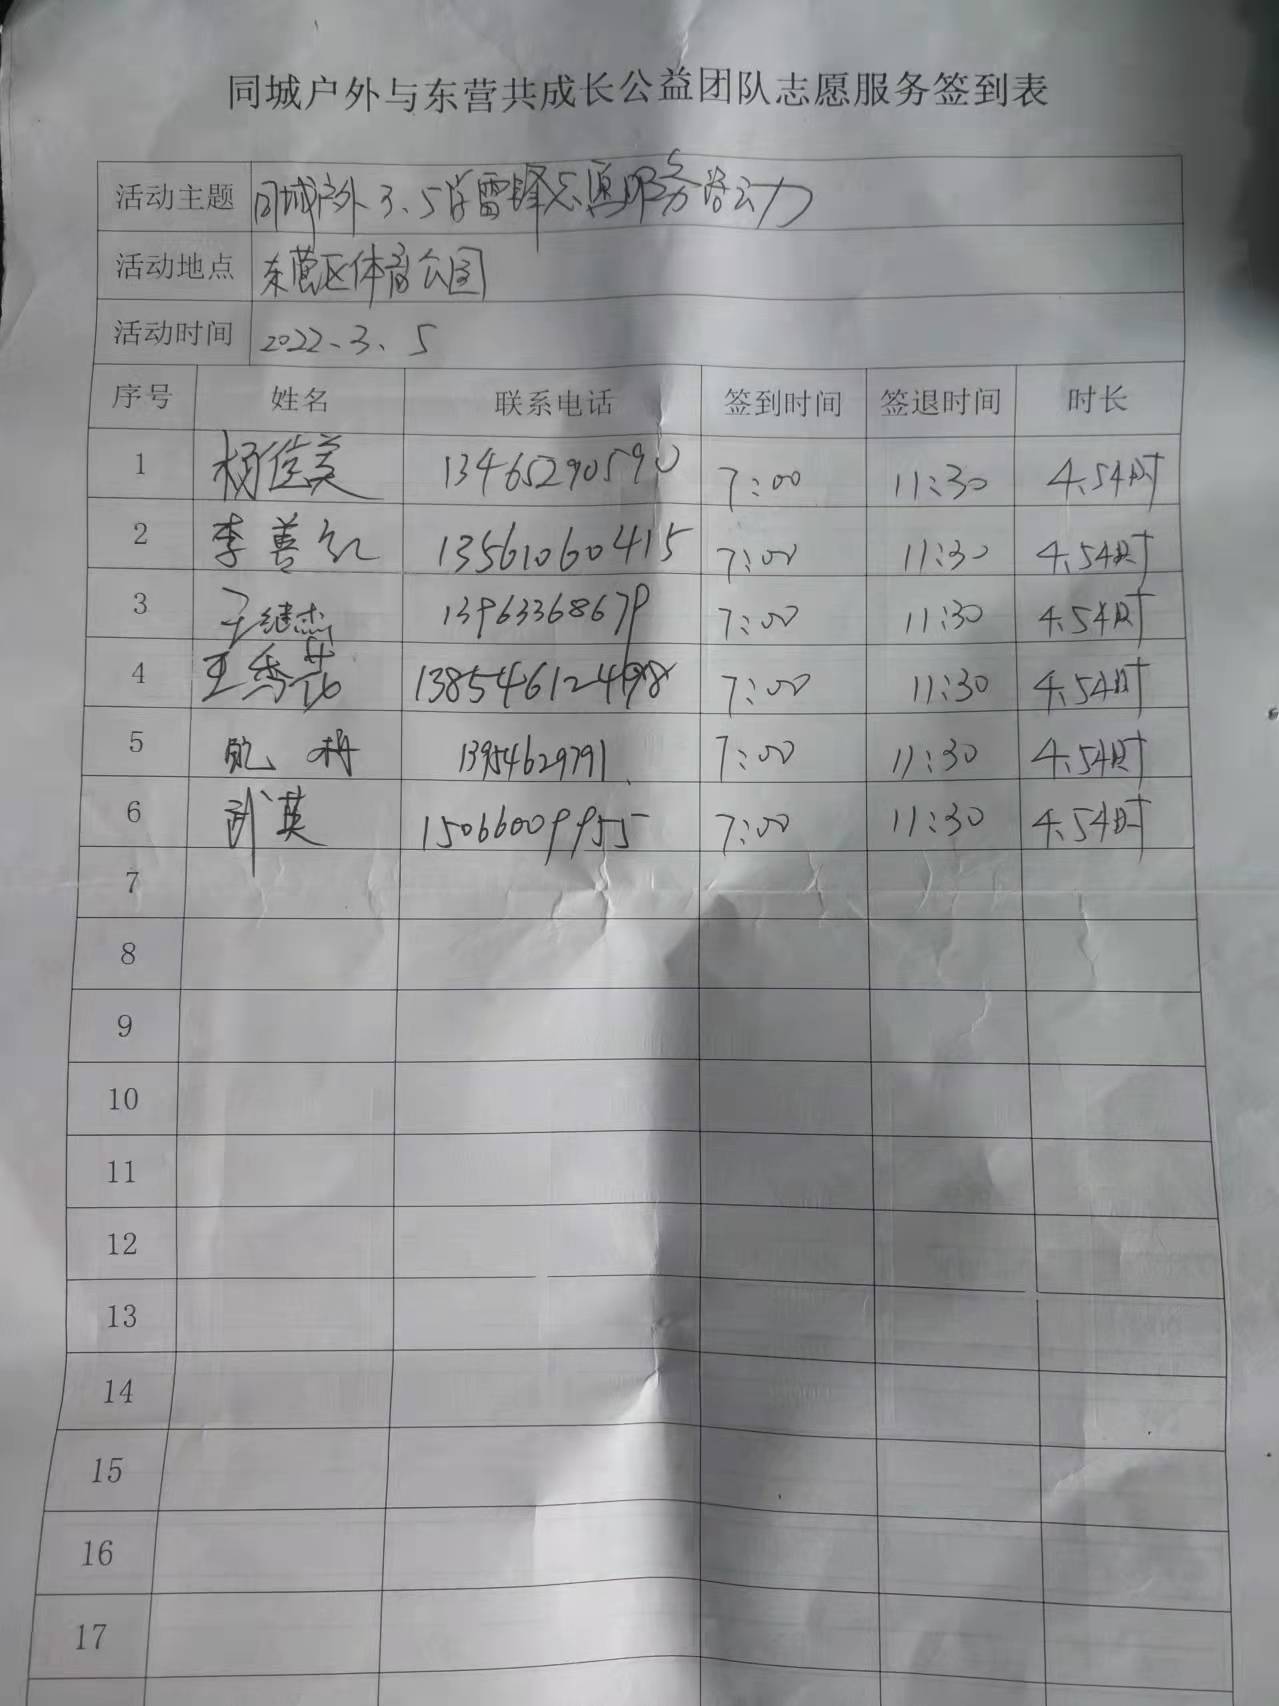 同城户外与东营共成长公益团队志愿服务签到表
活动主题 同城户外3、5学雷锋志愿服务活动
活动地点 东营区体育公园
活动时间 2022、3、5
序号 姓名 联系电话 签到时间 签退时间 时长
1 杨佳美 13465290590 7:00 11:30 4.5小时
2 李善红 13561060415 7:00 11:30 4.5小时
3 继杰 13963368679 7:00 11:30 4.5小时
4 王秀花 13854612498 7:00 11:30 4.5小时
5 梅 13954629791 7:00 11:30 4.5小时
6 武英 15066009955 7:00 11:30 4.5小时
7
8
9
10
11
12
13
14
15
16
17